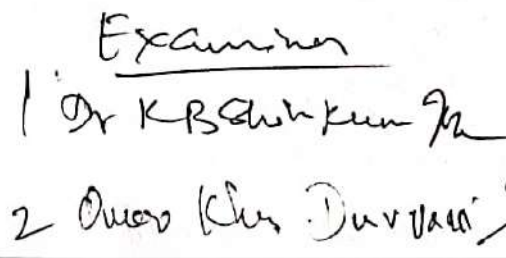 Examiner
1 Dr K B Shiv Kumar
2 Omer Khan Durrani